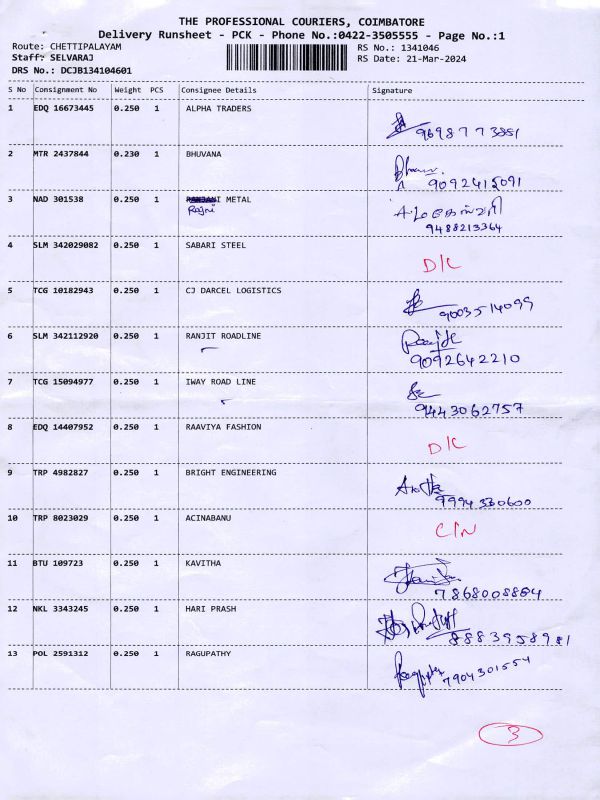 THE PROFESSIONAL COURIERS, COIMBATORE
Delivery Runsheet - PCK - Phone No.:0422-3505555 - Page No.:1
Route: CHETTIPALAYAM RS No.: 1341046
Staff: SELVARAJ RS Date: 21-Mar-2024
DRS No.: DCJB134104601
S No Consignment No Weight PCS Consignee Details Signature
1 EDQ 16673445 0.250 1 ALPHA TRADERS
9698773551
2 MTR 2437844 0.230 1 BHUVANA
9092415091
3 NAD 301538 0.250 1 RANJANI METAL
Rajni
9488213364
4 SLM 342029082 0.250 1 SABARI STEEL
D/C
5 TCG 10182943 0.250 1 CJ DARCEL LOGISTICS
9003514099
6 SLM 342112920 0.250 1 RANJIT ROADLINE
9092642210
7 TCG 15094977 0.250 1 IWAY ROAD LINE
9443062757
8 EDQ 14407952 0.250 1 RAAVIYA FASHION
D/C
9 TRP 4982827 0.250 1 BRIGHT ENGINEERING
9994330600
10 TRP 8023029 0.250 1 ACINABANU
C/N
11 BTU 109723 0.250 1 KAVITHA
7868008864
12 NKL 3343245 0.250 1 HARI PRASH
8883958981
13 POL 2591312 0.250 1 RAGUPATHY
7904301554
3